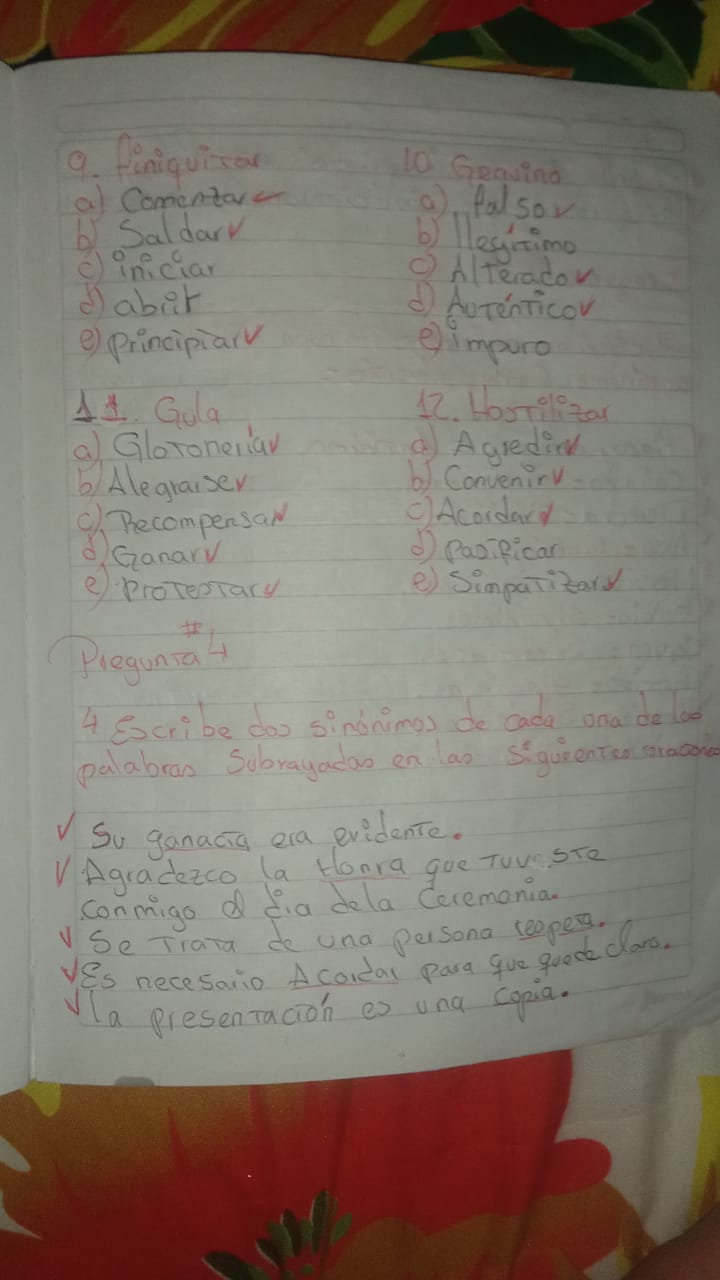 9. finiquitar
a) Comentar
b) Saldar ✓
c) iniciar
d) abrir
e) principiar ✓
10 Genuino
a) falso ✓
b) Ilegítimo
c) Alterado ✓
d) Auténtico ✓
e) impuro
11. Gula
a) Glotonería ✓
b) Alegrarse ✓
c) Recompensar
d) Ganar ✓
e) Protestar ✓
12. Hostilizar
a) Agredir ✓
b) Convenir ✓
c) Acordar ✓
d) Pacificar
e) Simpatizar ✓
Pregunta #4
4 Escribe dos sinónimos de cada una de las
palabras Subrayadas en las siguientes oraciones
✓ Su ganacia era evidente.
✓ Agradezco la Honra que Tuviste
conmigo el día dela Ceremonia.
✓ Se Trata de una persona
✓ Es necesario Acordar para que quede claro.
✓ la presentación es una copia.